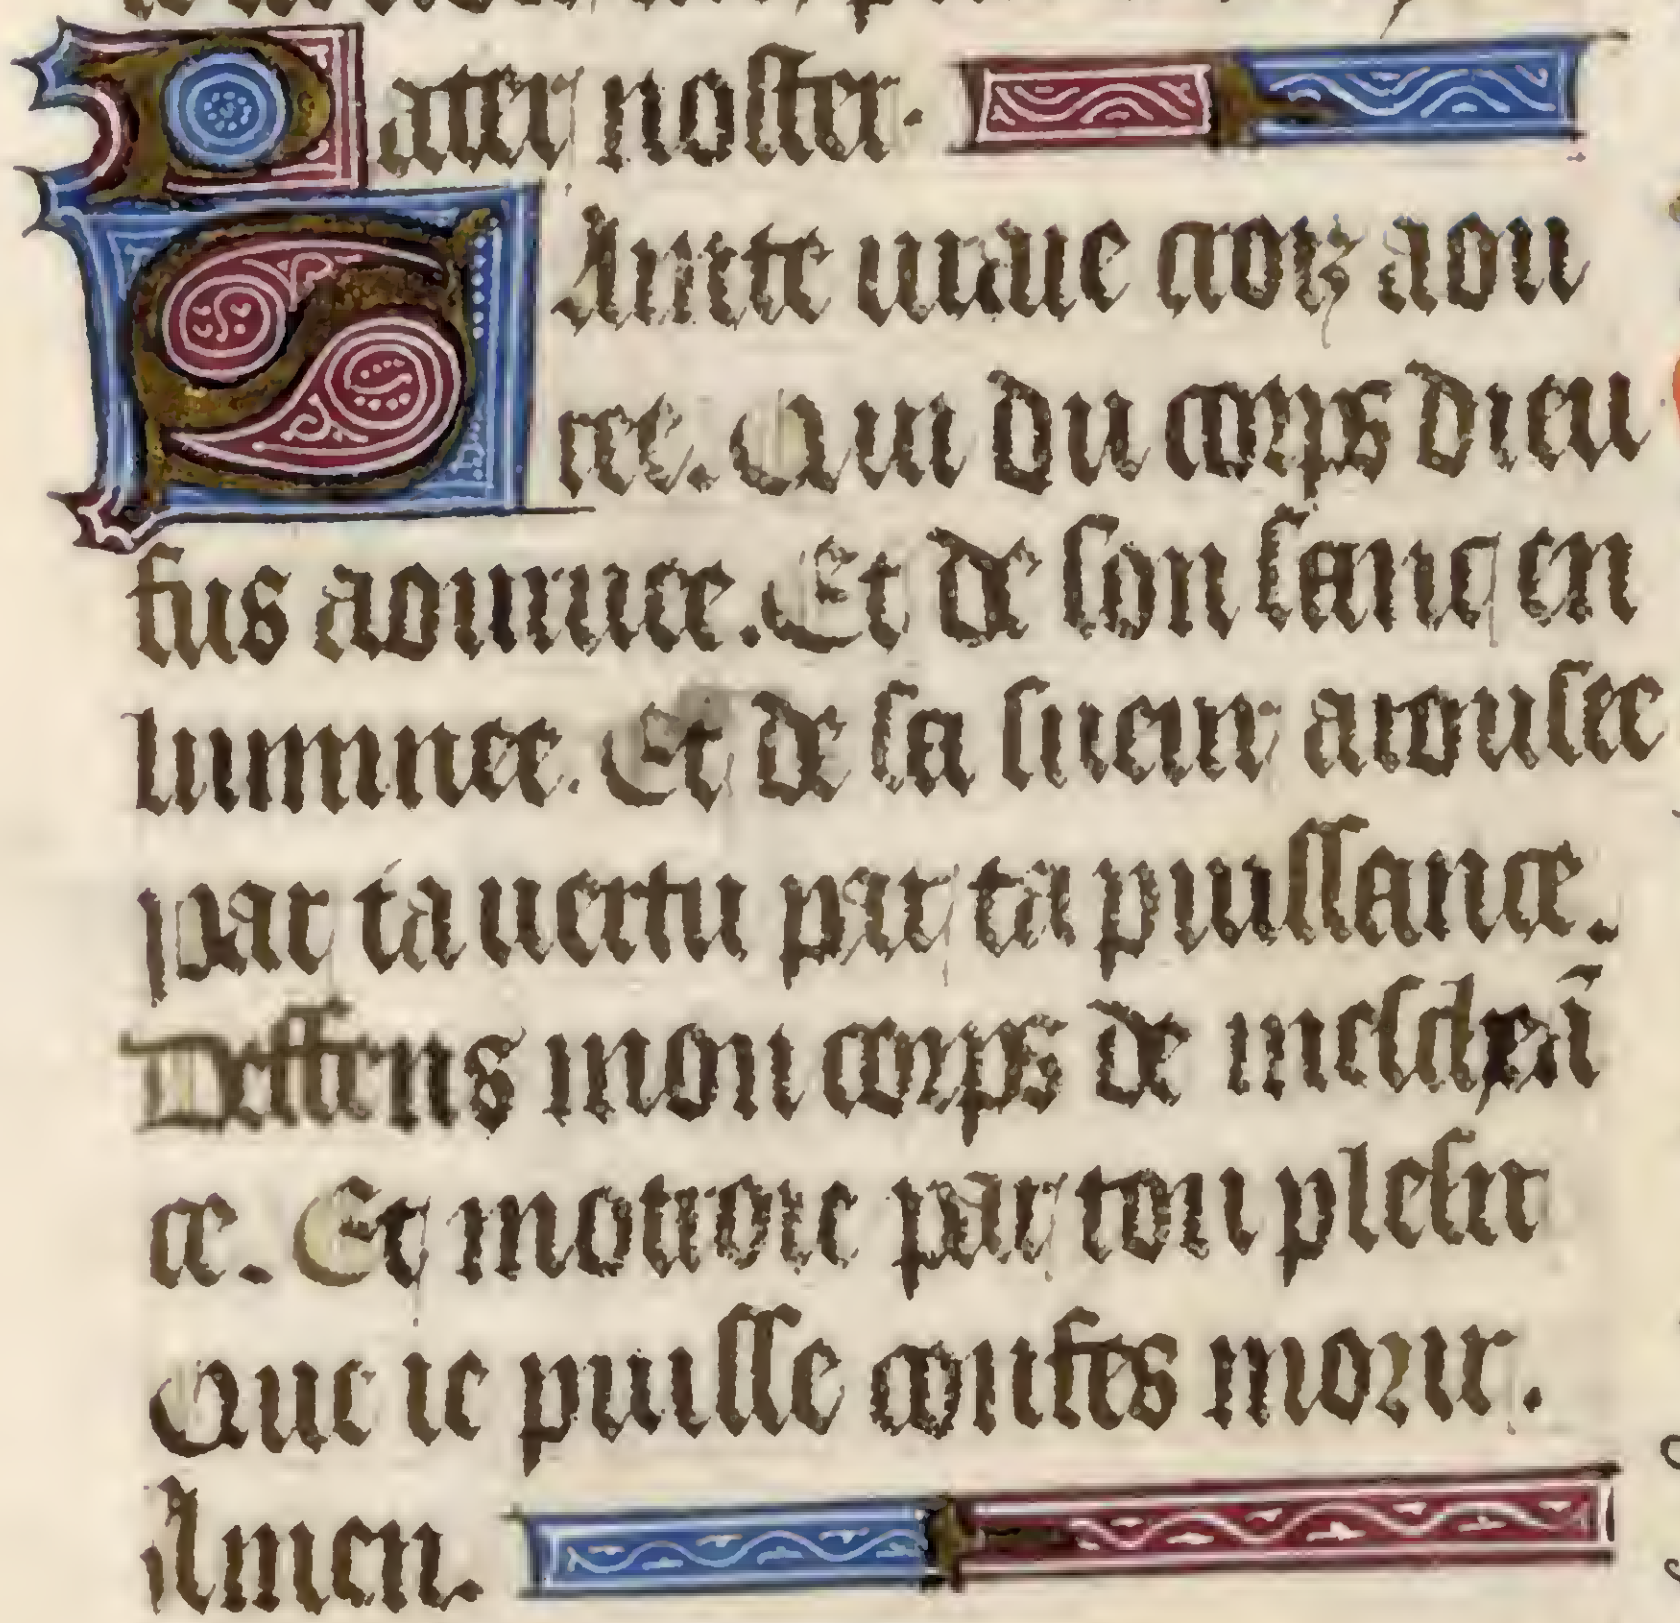 Pater noster.
Saincte uraie croiz aou
ree. Qui du corps dieu
fus aournee. Et de son sanc en
luminee. Et de sa sueur arousee
par ta uertu par ta puissance.
Deffens mon corps de mescheā
ce. Et motroie par ton plesir
Que ie puisse confes morir.
Amen.